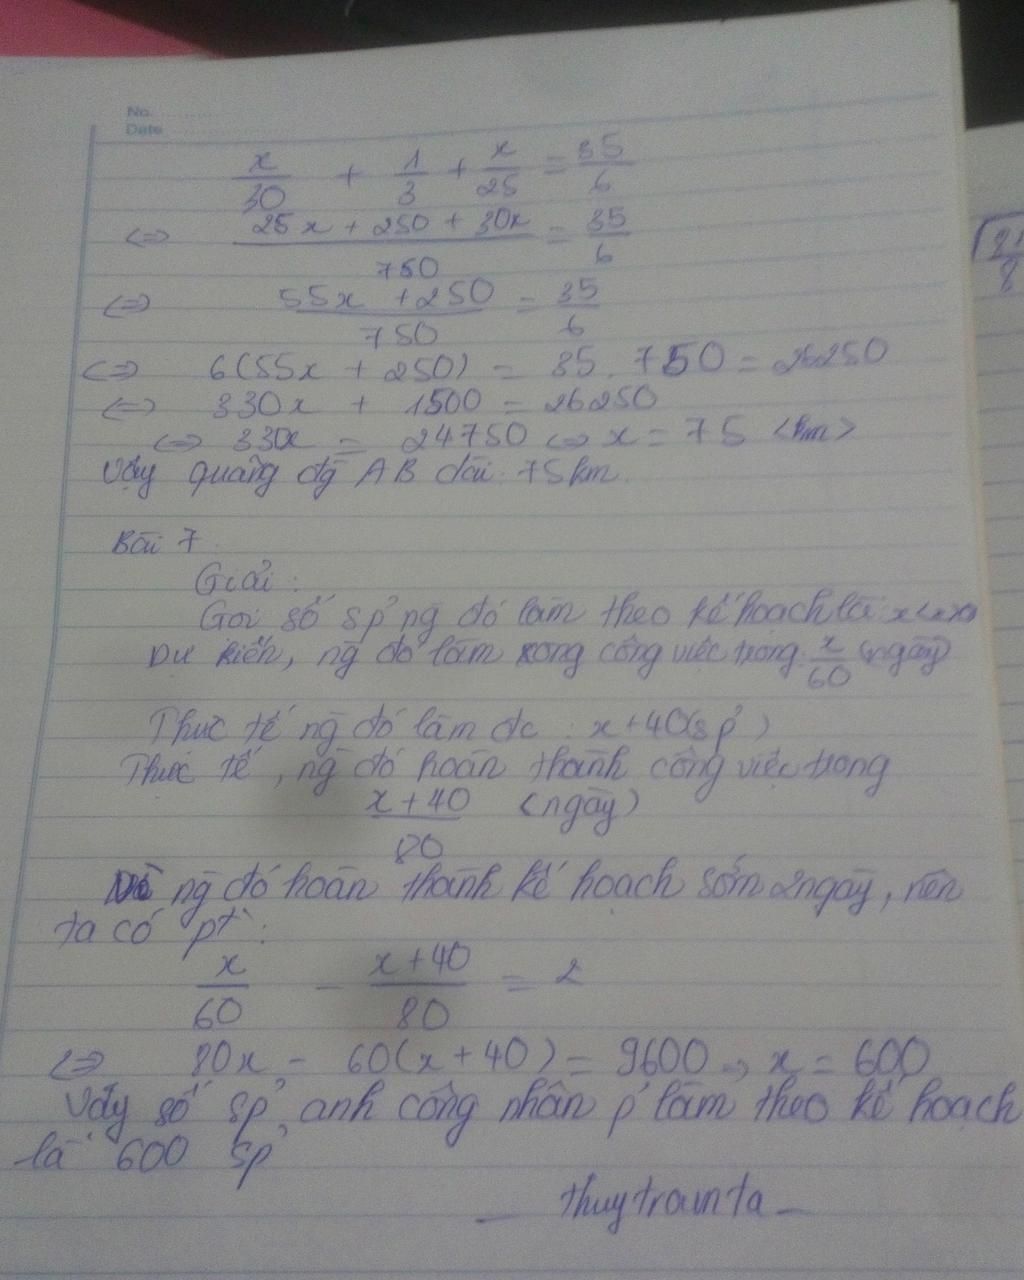 No.
Date
x/30 + 1/3 + x/25 = 35/6
<=> (25x + 250 + 30x)/750 = 35/6
<=> (55x + 250)/750 = 35/6
<=> 6(55x + 250) = 35. 750 = 26250
<=> 330x + 1500 = 26250
<=> 330x = 24750 <=> x = 75 <km>
Vậy quãng đg AB dài: 75km.
Bài 7
Giải:
Gọi số sp' ng đó làm theo kế hoạch là: x
Dự kiến, ng đó làm xong công việc trong: x/60 (ngày)
Thực tế ng đó làm đc : x+40(sp')
Thực tế, ng đó hoàn thành công việc trong
(x+40)/80 (ngày)
Vì ng đó hoàn thành kế hoạch sớm 2ngày, nên
ta có pt:
x/60 - (x+40)/80 = 2
<=> 80x - 60(x+40) = 9600 => x = 600
Vậy số sp' anh công nhân p' làm theo kế hoạch
là 600 sp'
_ thuytramta _
21
8